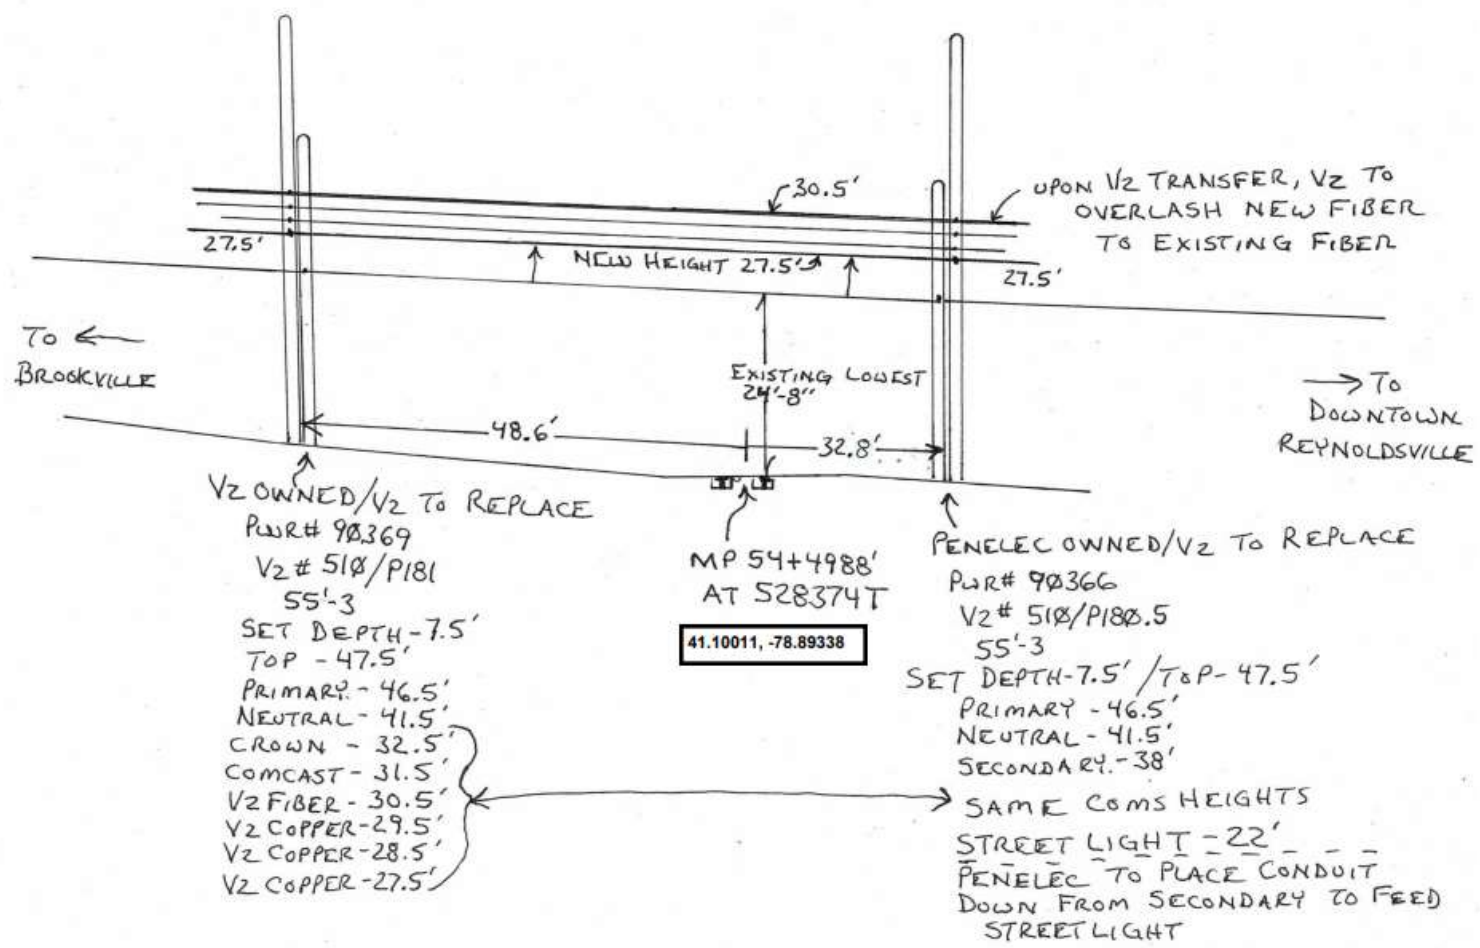 30.5'
UPON VZ TRANSFER, VZ TO
OVERLASH NEW FIBER
TO EXISTING FIBER
27.5'
NEW HEIGHT 27.5'
27.5'
TO
BROOKVILLE
EXISTING LOWEST
24'-8"
TO
DOWNTOWN
REYNOLDSVILLE
48.6'
32.8'
VZ OWNED/VZ TO REPLACE
PWR# 90369
VZ# 510/P181
55'-3
SET DEPTH-7.5'
TOP - 47.5'
PRIMARY.- 46.5'
NEUTRAL- 41.5'
CROWN - 32.5'
COMCAST- 31.5'
VZ FIBER- 30.5'
VZ COPPER-29.5'
VZ COPPER-28.5'
VZ COPPER-27.5'
MP 54+4988'
AT 528374T
41.10011, -78.89338
PENELEC OWNED/VZ TO REPLACE
PWR# 90366
VZ# 510/P180.5
55'-3
SET DEPTH-7.5' /TOP- 47.5'
PRIMARY -46.5'
NEUTRAL- 41.5'
SECONDARY.-38'
SAME COMS HEIGHTS
STREET LIGHT -22'
PENELEC TO PLACE CONDUIT
DOWN FROM SECONDARY TO FEED
STREET LIGHT